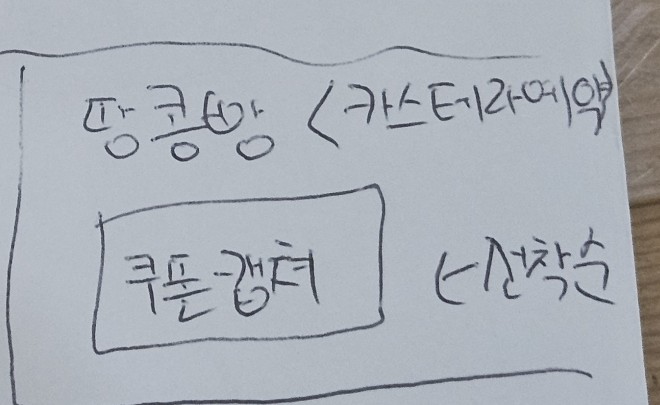 땅콩빵 <카스테라예약
쿠폰캡쳐 (-선착순